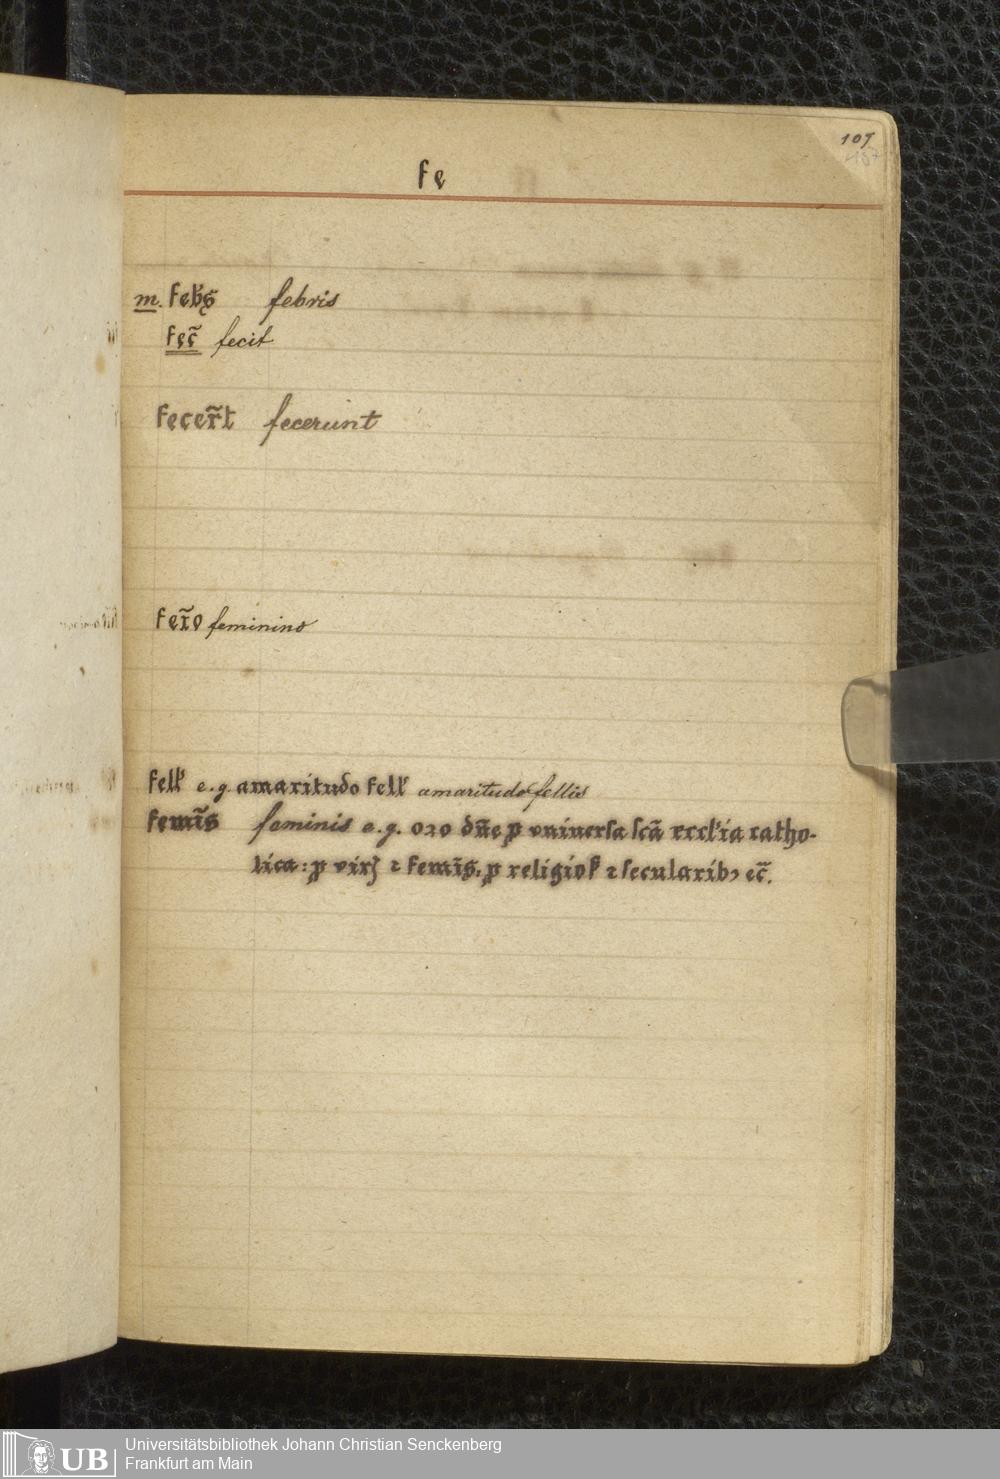 107
187
fe
m. febꝭ febris
fec̃ fecit
fecer̃t fecerunt
fem̃o feminino
fell' e.g. amaritudo fell' amaritudo fellis
femĩs feminis e.g. oꝛo dñe ꝓ vniuersa scã eccl'ia catho-
lica: ꝓ virꝭ ⁊ femĩs, ꝓ religioſ' ⁊ secularibꝫ ec̃.
UB
Universitätsbibliothek Johann Christian Senckenberg
Frankfurt am Main